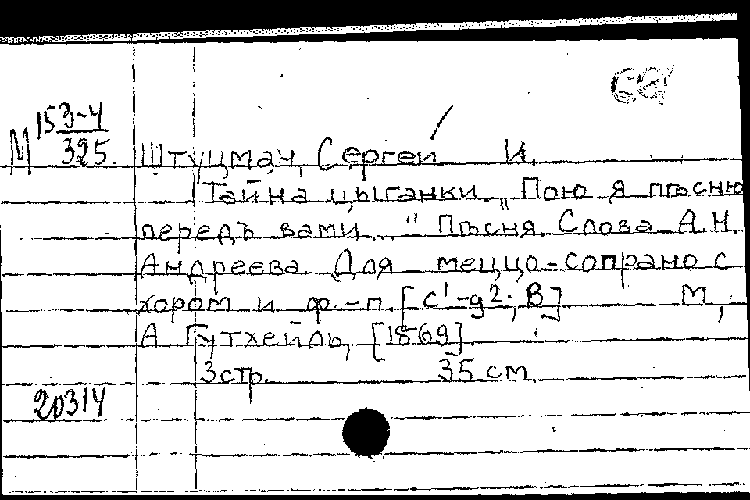 М 153-4
325.
Штуцман, Сергей И.
Тайна цыганки. „Пою я пѣсню
передъ вами..." Пѣсня. Слова А.Н.
Андреева. Для меццо-сопрано с
хором и ф.-п. [c¹-g²; B] М.,
А. Гутхейль, [1869].
3 стр. 35 см.
20314